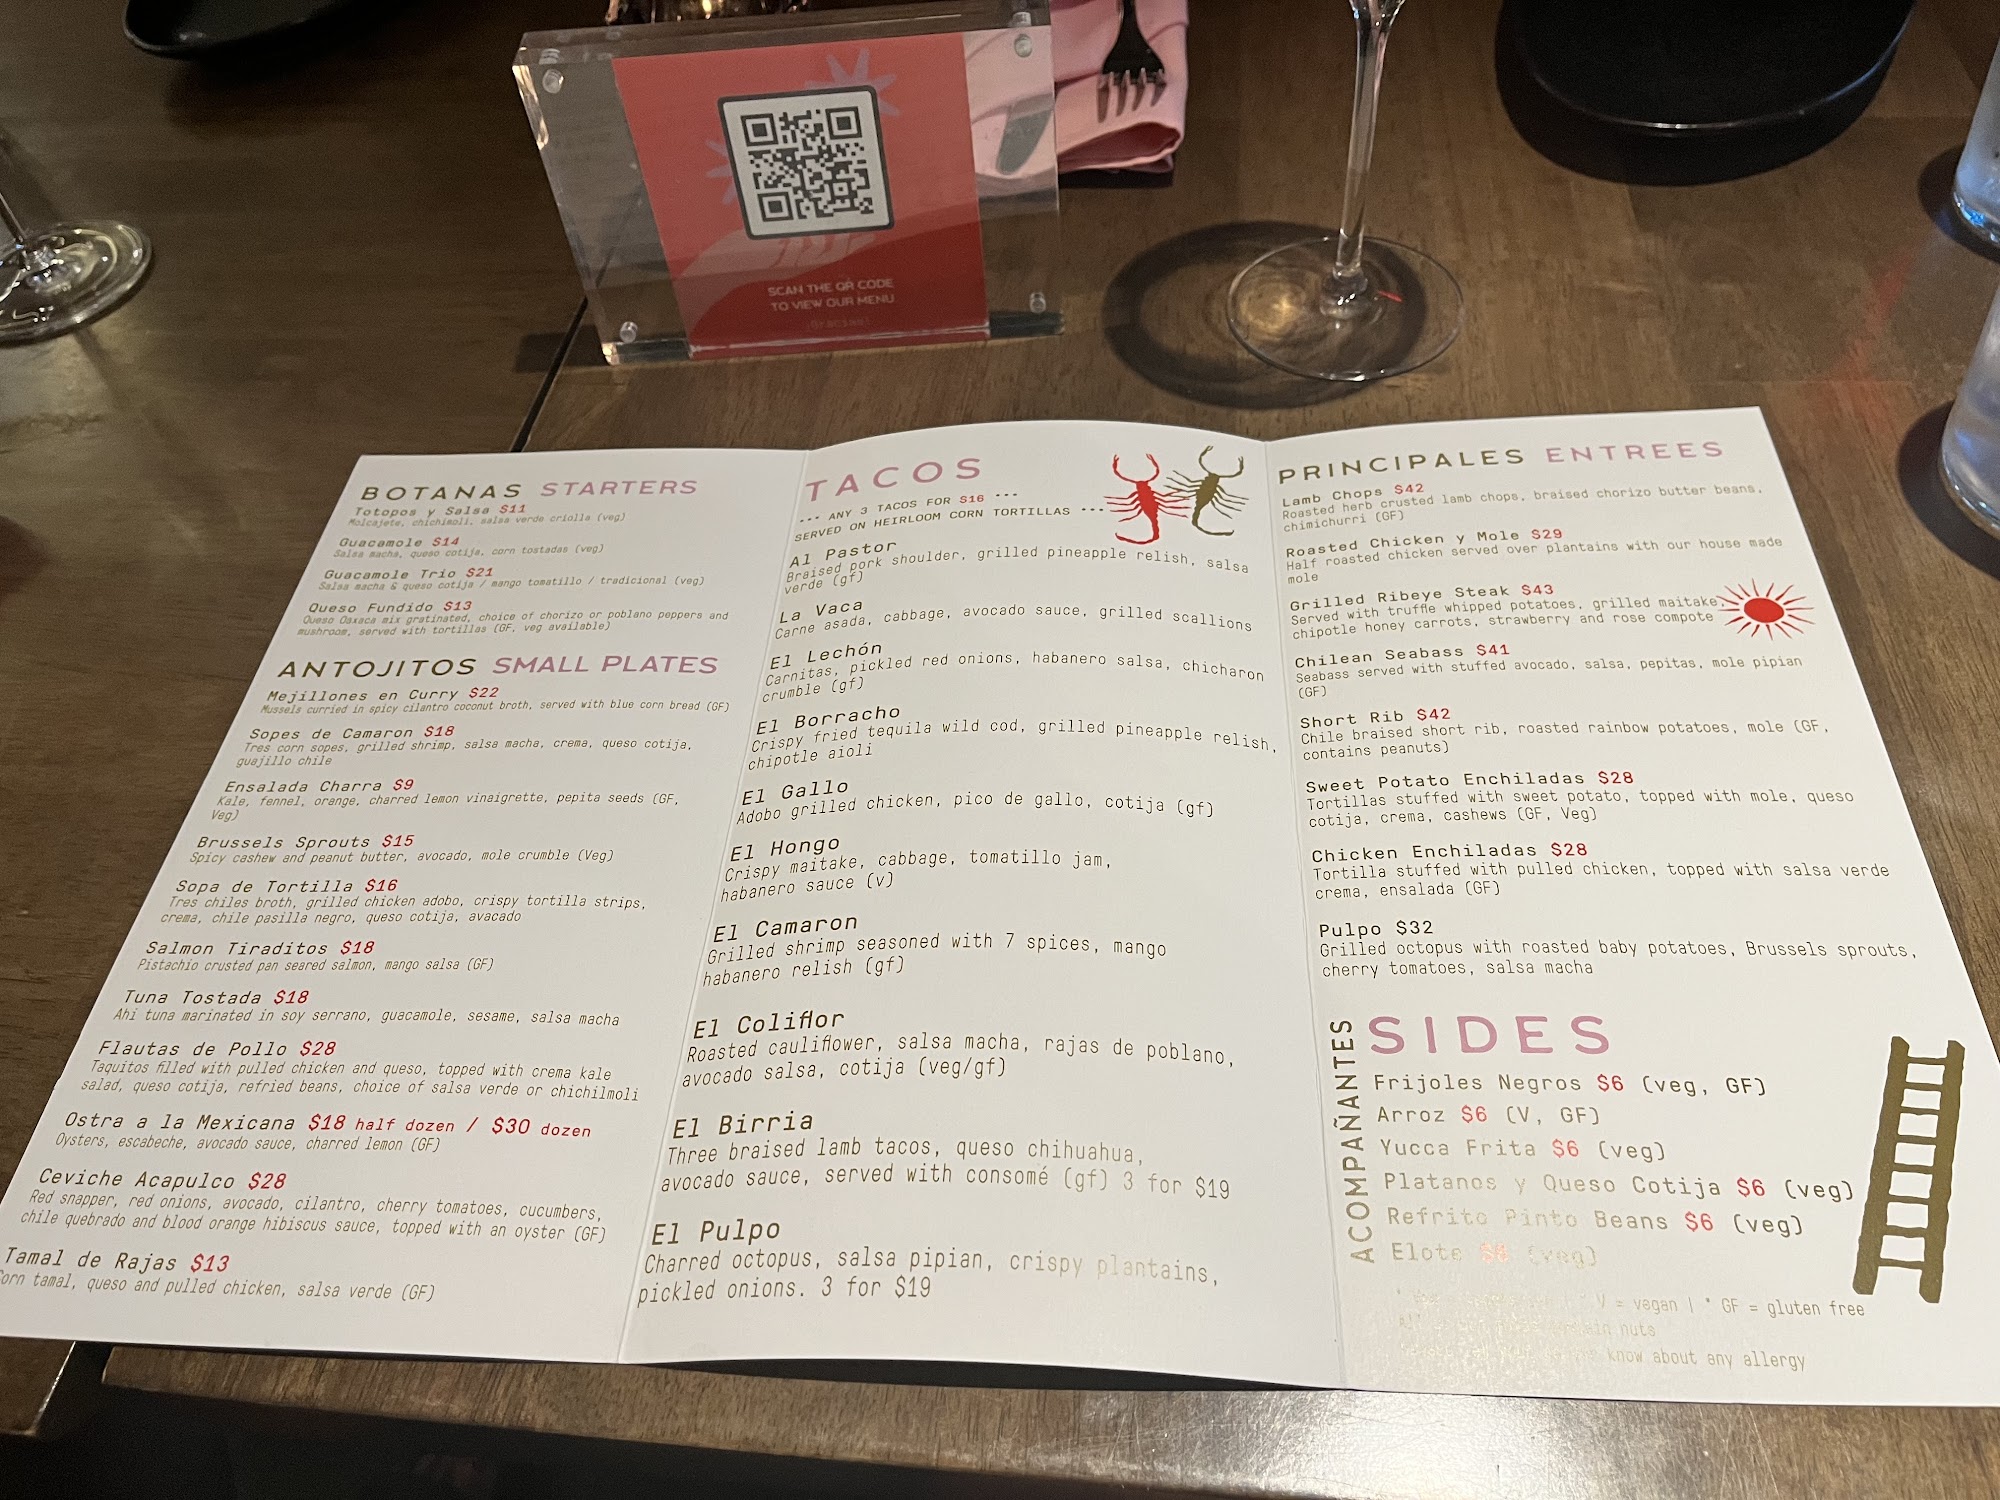 SCAN THE QR CODE
TO VIEW OUR MENU
¡Gracias!
BOTANAS STARTERS
Totopos y Salsa $11
Molcajete, chichimoli, salsa verde criolla (veg)
Guacamole $14
Salsa macha, queso cotija, corn tostadas (veg)
Guacamole Trio $21
Salsa macha & queso cotija / mango tomatillo / tradicional (veg)
Queso Fundido $13
Queso Oaxaca mix gratinated, choice of chorizo or poblano peppers and
mushroom, served with tortillas (GF, veg available)
ANTOJITOS SMALL PLATES
Mejillones en Curry $22
Mussels curried in spicy cilantro coconut broth, served with blue corn bread (GF)
Sopes de Camaron $18
Tres corn sopes, grilled shrimp, salsa macha, crema, queso cotija,
guajillo chile
Ensalada Charra $9
Kale, fennel, orange, charred lemon vinaigrette, pepita seeds (GF,
Veg)
Brussels Sprouts $15
Spicy cashew and peanut butter, avocado, mole crumble (Veg)
Sopa de Tortilla $16
Tres chiles broth, grilled chicken adobo, crispy tortilla strips,
crema, chile pasilla negro, queso cotija, avacado
Salmon Tiraditos $18
Pistachio crusted pan seared salmon, mango salsa (GF)
Tuna Tostada $18
Ahi tuna marinated in soy serrano, guacamole, sesame, salsa macha
Flautas de Pollo $28
Taquitos filled with pulled chicken and queso, topped with crema kale
salad, queso cotija, refried beans, choice of salsa verde or chichilmoli
Ostra a la Mexicana $18 half dozen / $30 dozen
Oysters, escabeche, avocado sauce, charred lemon (GF)
Ceviche Acapulco $28
Red snapper, red onions, avocado, cilantro, cherry tomatoes, cucumbers,
chile quebrado and blood orange hibiscus sauce, topped with an oyster (GF)
Tamal de Rajas $13
Corn tamal, queso and pulled chicken, salsa verde (GF)
TACOS
••• ANY 3 TACOS FOR $16 •••
SERVED ON HEIRLOOM CORN TORTILLAS •••
Al Pastor
Braised pork shoulder, grilled pineapple relish, salsa
verde (gf)
La Vaca
Carne asada, cabbage, avocado sauce, grilled scallions
El Lechón
Carnitas, pickled red onions, habanero salsa, chicharon
crumble (gf)
El Borracho
Crispy fried tequila wild cod, grilled pineapple relish,
chipotle aioli
El Gallo
Adobo grilled chicken, pico de gallo, cotija (gf)
El Hongo
Crispy maitake, cabbage, tomatillo jam,
habanero sauce (v)
El Camaron
Grilled shrimp seasoned with 7 spices, mango
habanero relish (gf)
El Coliflor
Roasted cauliflower, salsa macha, rajas de poblano,
avocado salsa, cotija (veg/gf)
El Birria
Three braised lamb tacos, queso chihuahua,
avocado sauce, served with consomé (gf) 3 for $19
El Pulpo
Charred octopus, salsa pipian, crispy plantains,
pickled onions. 3 for $19
PRINCIPALES ENTREES
Lamb Chops $42
Roasted herb crusted lamb chops, braised chorizo butter beans,
chimichurri (GF)
Roasted Chicken y Mole $29
Half roasted chicken served over plantains with our house made
mole
Grilled Ribeye Steak $43
Served with truffle whipped potatoes, grilled maitake,
chipotle honey carrots, strawberry and rose compote
Chilean Seabass $41
Seabass served with stuffed avocado, salsa, pepitas, mole pipian
(GF)
Short Rib $42
Chile braised short rib, roasted rainbow potatoes, mole (GF,
contains peanuts)
Sweet Potato Enchiladas $28
Tortillas stuffed with sweet potato, topped with mole, queso
cotija, crema, cashews (GF, Veg)
Chicken Enchiladas $28
Tortilla stuffed with pulled chicken, topped with salsa verde
crema, ensalada (GF)
Pulpo $32
Grilled octopus with roasted baby potatoes, Brussels sprouts,
cherry tomatoes, salsa macha
ACOMPAÑANTES SIDES
Frijoles Negros $6 (veg, GF)
Arroz $6 (V, GF)
Yucca Frita $6 (veg)
Platanos y Queso Cotija $6 (veg)
Refrito Pinto Beans $6 (veg)
Elote (veg)
V = vegan | * GF = gluten free
nuts
know about any allergy